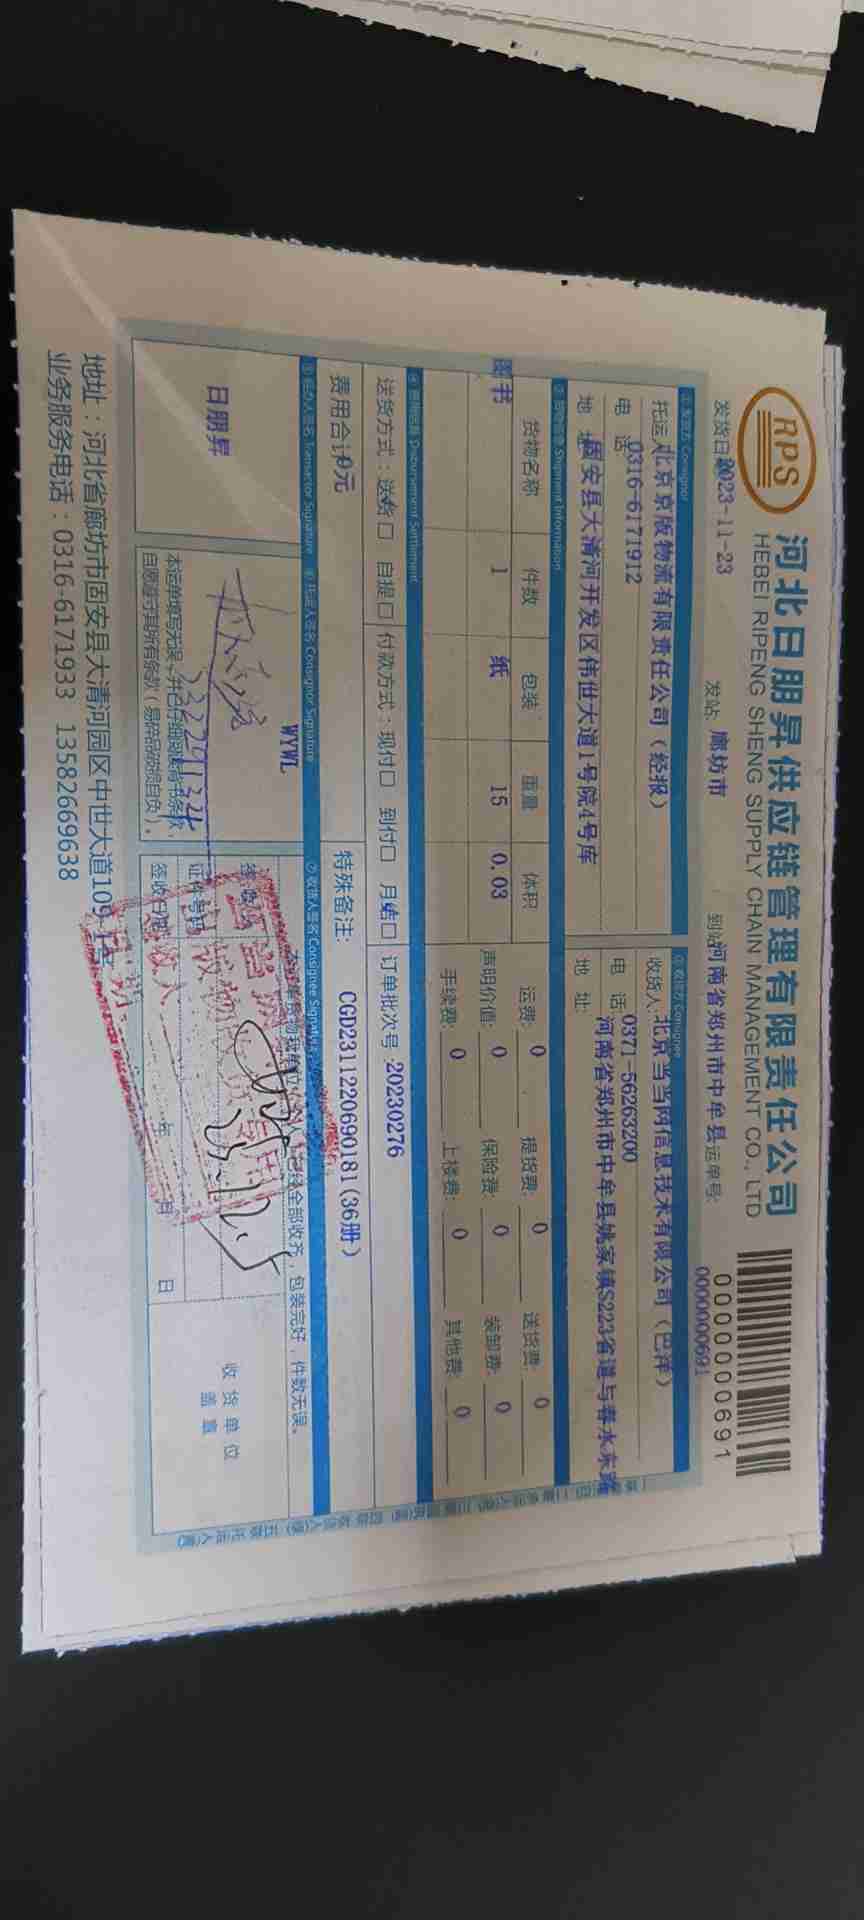 RPS
河北日朋昇供应链管理有限责任公司
HEBEI RIPENG SHENG SUPPLY CHAIN MANAGEMENT CO., LTD
0000000691
发货日期 2023-11-23 发站: 廊坊市 到站 河南省郑州市中牟县 运单号: 0000000691
①发货方 Consignor
托运人 北京京版物流有限责任公司(经报)
电 话 0316-6171912
地 址 固安县大清河开发区伟世大道1号院4号库
②收货方 Consignee
收货人 北京当当网信息技术有限公司(巴洋)
电 话 0371-56263200
地 址: 河南省郑州市中牟县姚家镇S223省道与春水东路
③货物信息 Shipment Information
货物名称 件数 包装 重量 体积
图书 1 纸 15 0.03
运费: 0 提货费: 0 送货费: 0
声明价值: 0 保险费: 0 装卸费: 0
手续费: 0 上楼费: 0 其他费: 0
④费用结算 Disbursement Settlement
送货方式:送货口 自提口 付款方式:现付口 到付口 月结口 订单批次号 20230276
费用合计 0元 特殊备注: CGD2311220690181(36册)
⑤经办人签名 Transactor Signature ⑥托运人签名 Consignor Signature ⑦收货人签名 Consignee Signature
日朋昇
WYWL
本运单填写无误,并已仔细阅读背书条款,
自愿遵守其所有条款(易碎品破损自负)。
包装完好,件数无误。
证件号码
签收日期 年 月 日
收货单位
盖章
地址:河北省廊坊市固安县大清河园区中世大道109-1号
业务服务电话:0316-6171933 13582669638